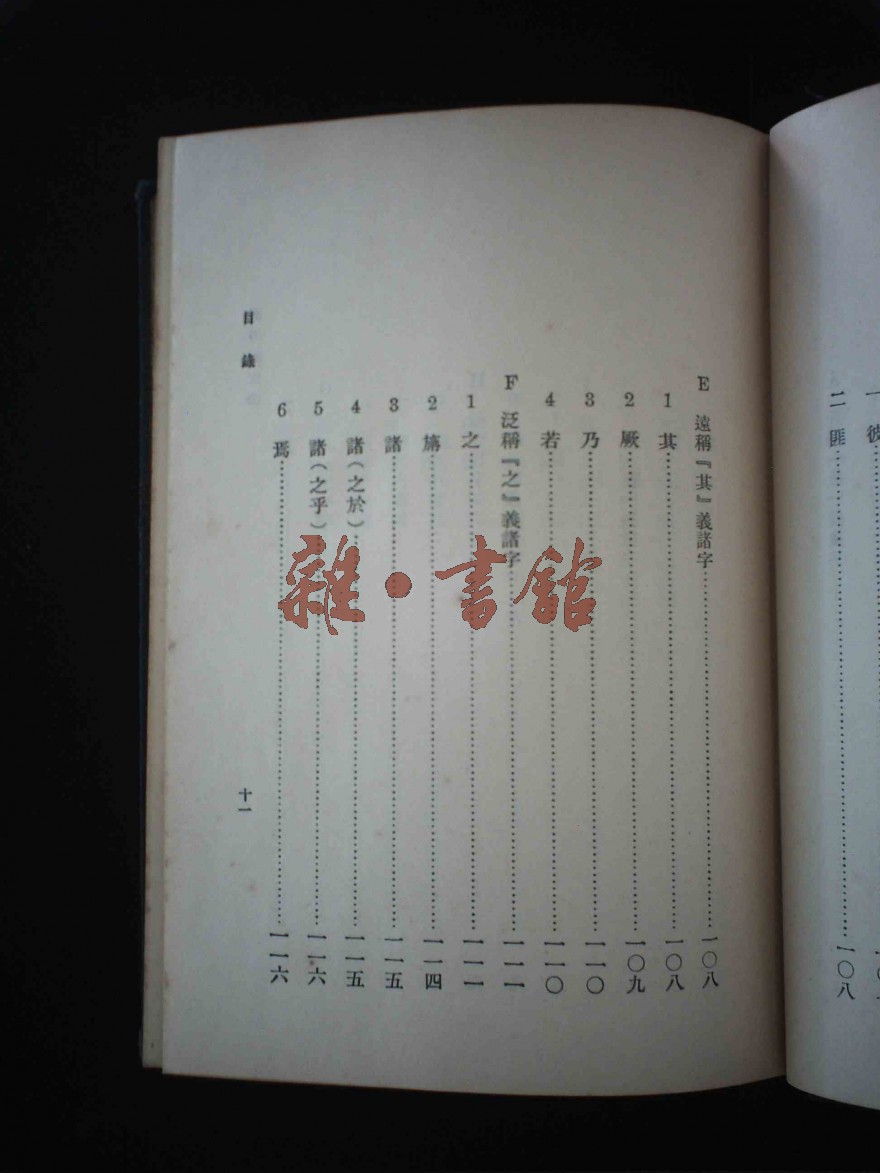 一 彼
二 匪……一〇八
E 遠稱『其』義諸字……一〇八
1 其……一〇八
2 厥……一〇九
3 乃……一一〇
4 若……一一〇
F 泛稱『之』義諸字……一一一
1 之……一一一
2 旃……一一四
3 諸……一一五
4 諸(之於)……一一五
5 諸(之乎)……一一六
6 焉……一一六
目錄
十一
雜·書館